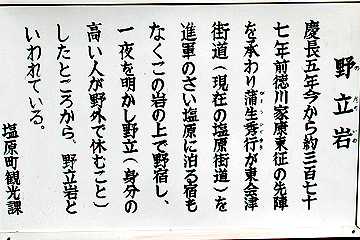 野立岩
慶長五年今から約三百七十
七年前徳川家康東征の先陣
を承わり蒲生秀行が東会津
街道（現在の塩原街道）を
進軍のさい塩原に泊る宿も
なくこの岩の上で野宿し、
一夜を明かし野立（身分の
高い人が野外で休むこと）
したところから、野立岩と
いわれている。
塩原町観光課